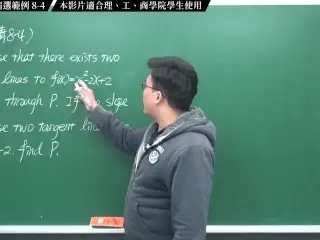 選範例 8-4 / 本影片適合理、工、商學院學生使用
8-4)
se that there exists two
lines to f(x)=x²-2x+2
through P. If slope
se two tangent
-2. find P.